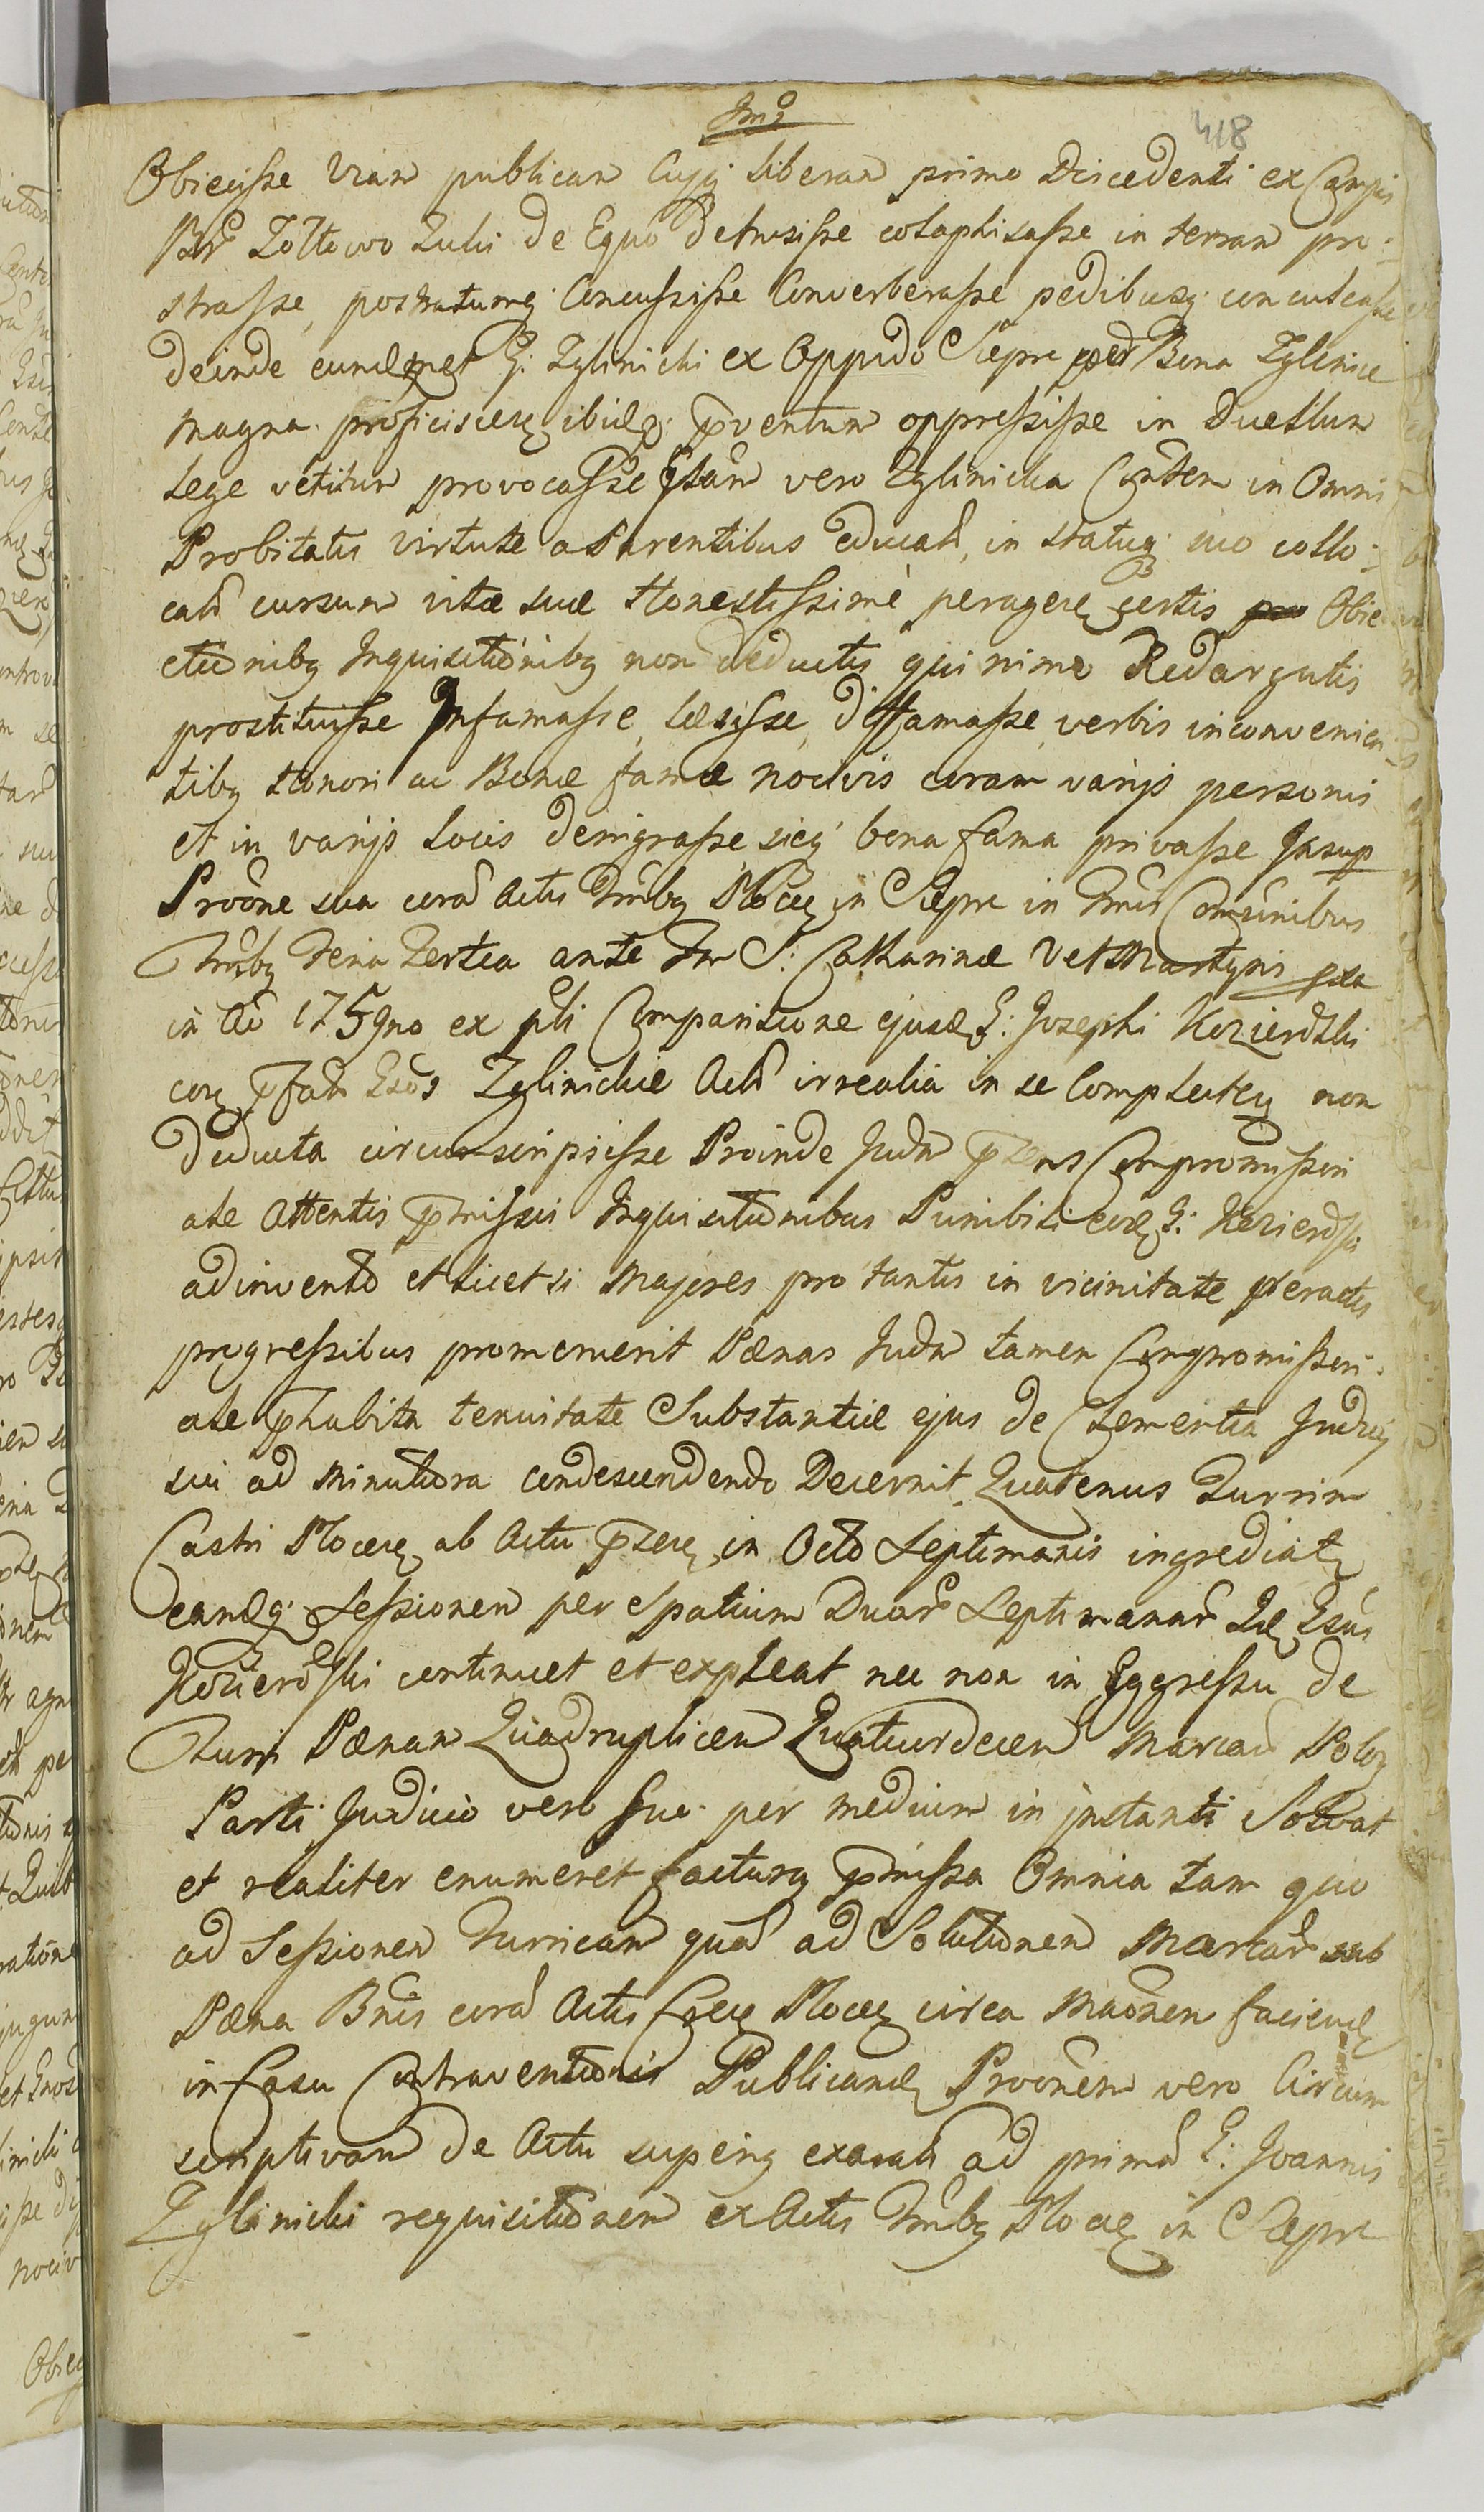 418
Obiecisse Viam publicam Cuiq; liberam primo Discedenti ex Campis
Bñr Zołtowo Zuki de Equo detrusisse colaphisasse in terram pro:
strasse, postratumq; Concussisse Converberasse pedibusq; conculcasse
deinde eundemet G: Zglinicki ex Oppido Siepre per Bona Zglenice
magna proficiscen ibidq; pventum oppressisse in Duellum
lege vetitum provocasse Gsam vero Zglinicka Contem in Omni
Probitatis virtute a Parentibus educat, in statuq; suo collo:
cat cursum vitæ suæ Honestissimè peragere certis Obie
ctionibq Inquisitionibq non deductis quinimo Redargutis
prostituisse Infamasse, læsisse, diffamasse, verbis inconvenien
tibq Honori ac Bonæ famæ nocivis coram varijs personis
et in varijs locis denigrasse sicq; bona fama privasse Insup
Provõne sua corã Actis Trribq Plocen in Siepre in Tmis Comunibus
Trribq Feria Tertia ante Fm S: Catharinæ V et Martyris
in Aõ 1759no ex pti Comparitione ejusd G: Josephi Kozierdzki
con pfat Gsos Zglinickie Actã irrealia in se Complecten non
deducta circumscripsisse Proinde Judm pzens Compromissori
ale Attentis pmissis Inquisitionibus Punibili eod G: Kozierdski
adinvento et licet si Majores pro tantis in vicinitate peractis
progressibus promeruerit Pænas Judm tamen Compromissori:
ale phabita tenuitate Substantiæ ejus de Clementia Judicij
sui ad minutiora condescendendo Decernit, Quatenus Turrim
Castri Plocen ab Actu pzen in Octo Septimanis ingrediat
eandq; Sessionem per Spatium Duar Septimanar Id Gsus
Kozierdski continuet et expleat nec non in Eggressu de
Turri Pænam Quadruplicem Quatuordecem Marcar Polq
Parti Judicio vero suo per medium in instanti Solvat
et realiter enumeret facturq pmissa Omnia tam quo
ad Sessionem Turricam quã ad Solutionem Marcar sub
Pæna Bnis corã Actis Cren Plocen circa Mãonem faciend
in Casu Contraventionis Publicand Provõnem vero Circum
scriptivam de Actu superiq exarat ad primã G: Joannis
Zglinicki requisitionem ex Actis Trribq Plocen in Siepre